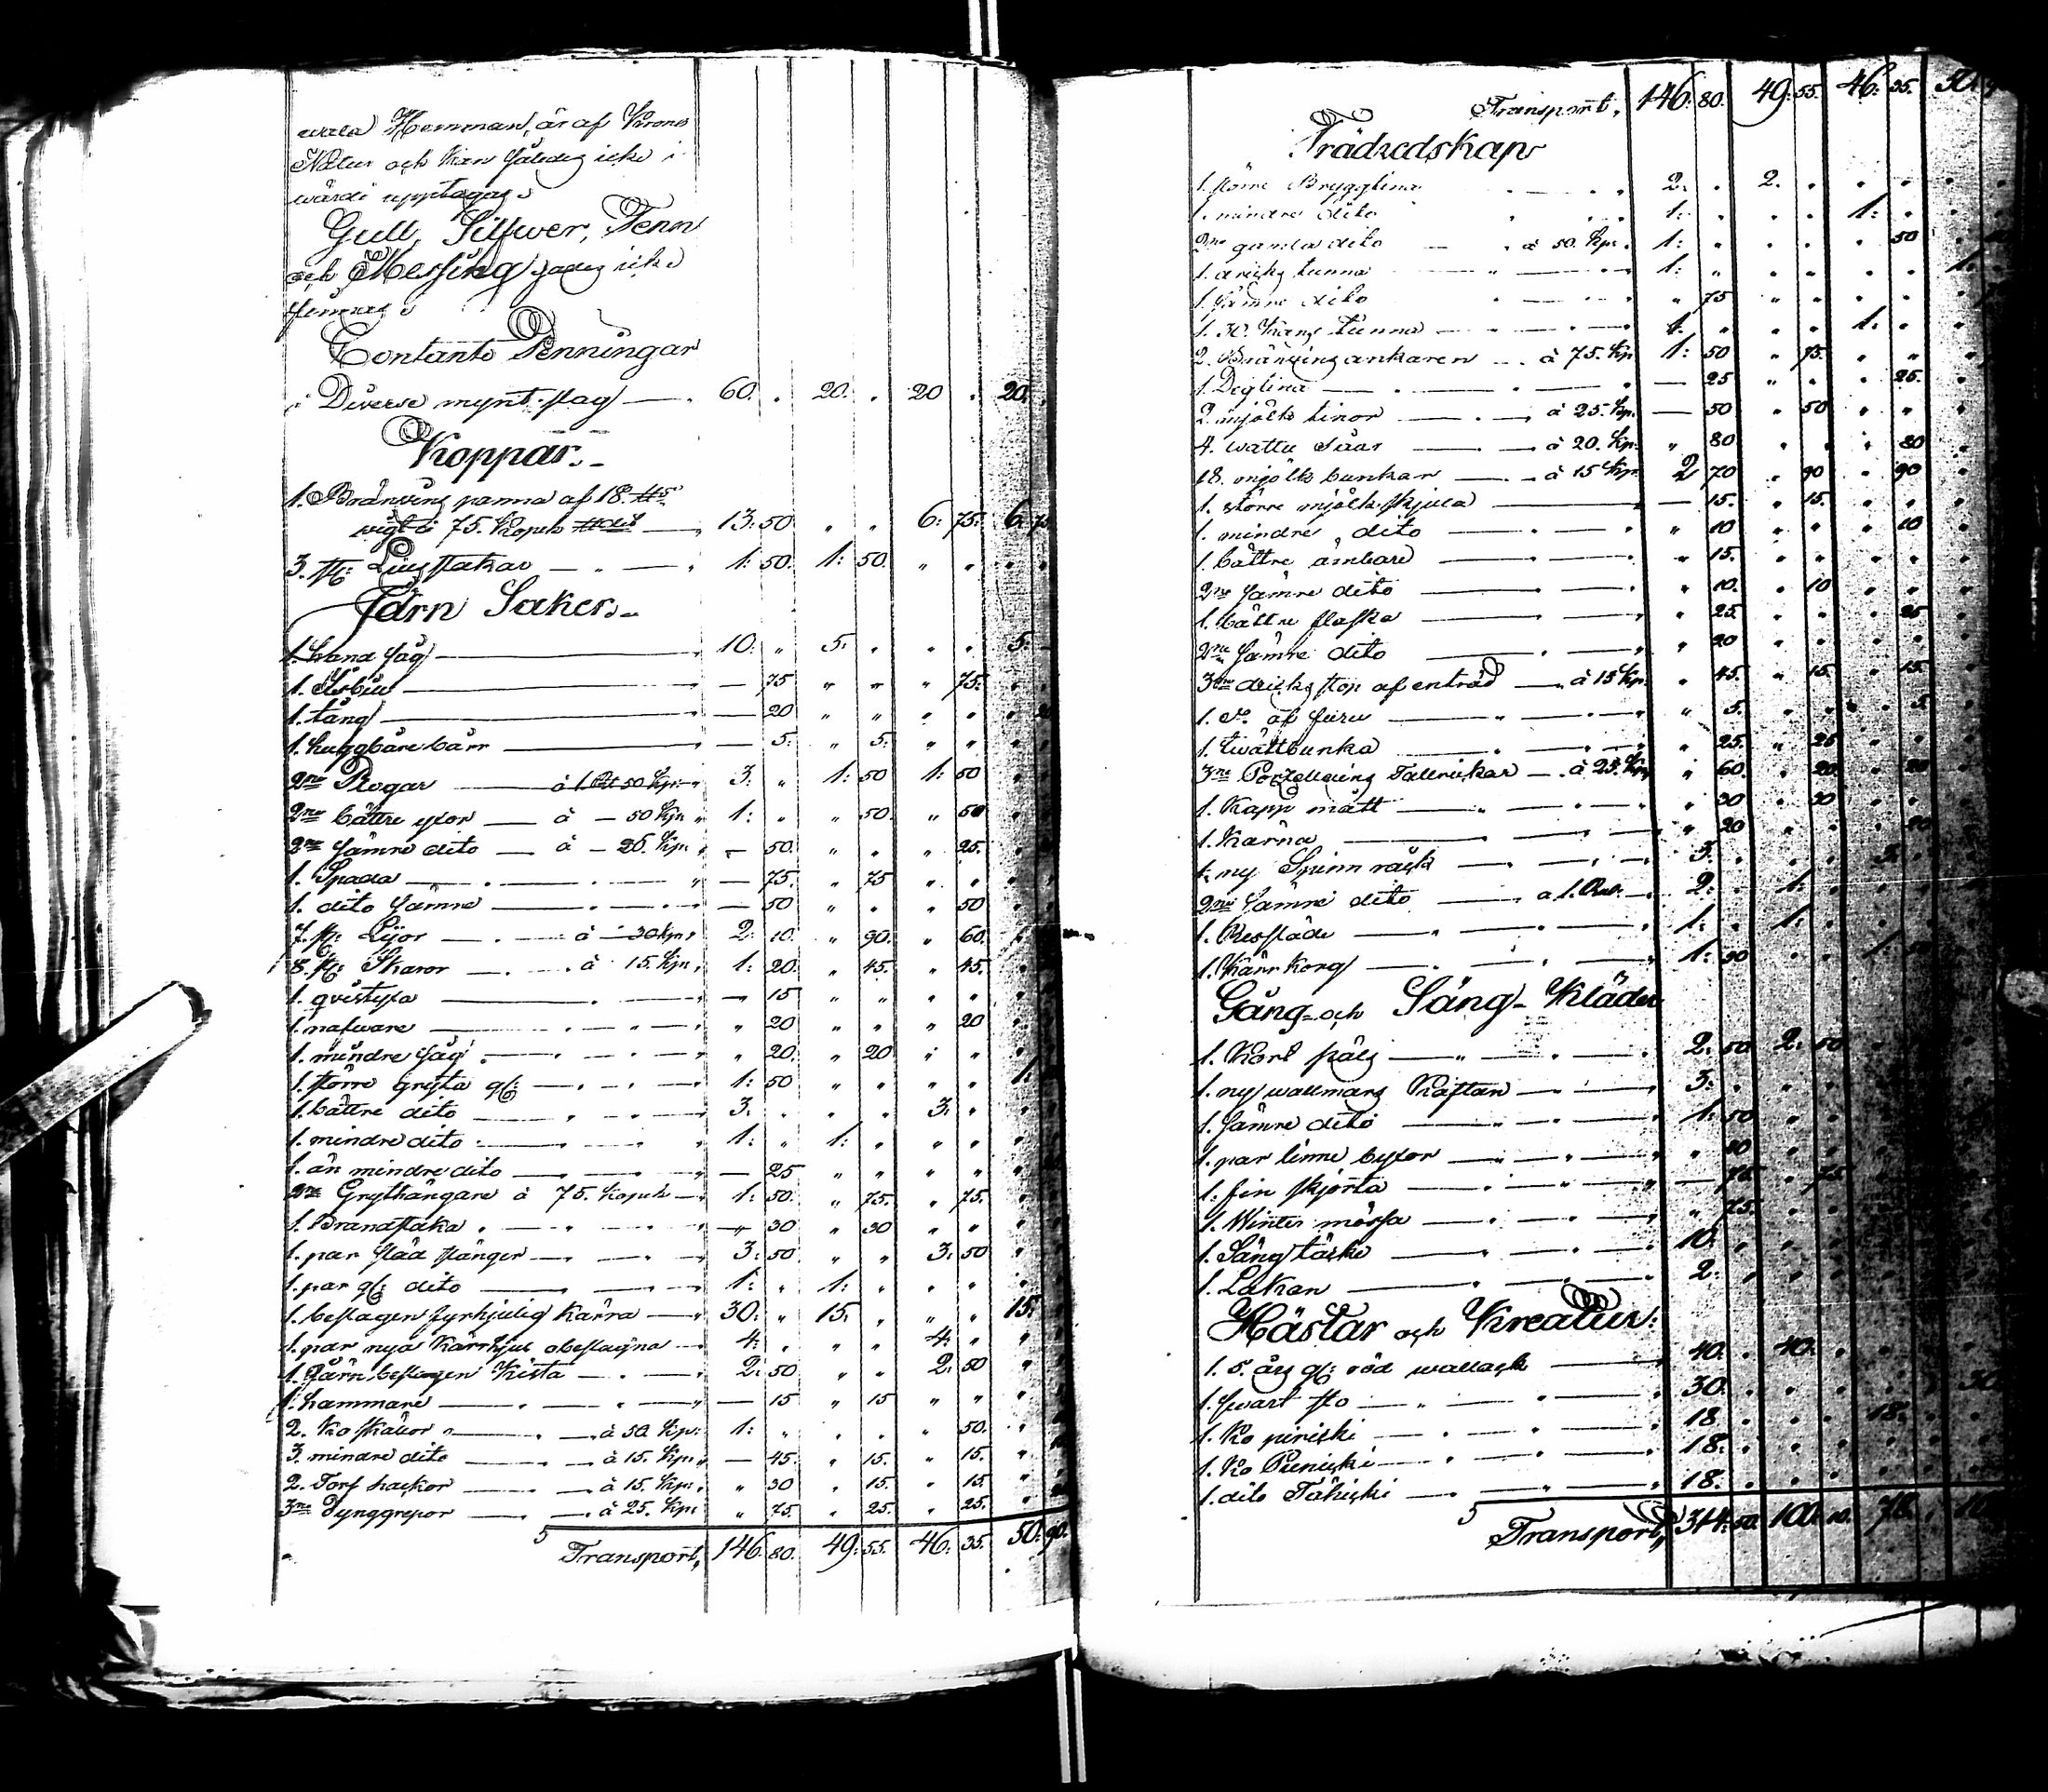 wala Hemman, är af Krono
Natur och kan således icke i
wärde upptagas
Gull, Silfwer, Tenn
och Messing sades icke
finnas
Contante Penningar
i Diverse mynt slag 60. 20. 20 20.
Koppar
1. Bränvins panna af 18
vigt à 75. Kopek 13: 50 6: 75. 6: 75
3. st: Ljusstakar 1: 50. 1: 50.
Järn Saker
1. hand såg 10: 5. 5.
1. Isbill 75 75.
1. tång 20 20
1. huggbåre bårr 5: 5.
2ne Plogar à 1 Rub 50 Kp: 3. 1: 50 1: 50
2ne bättre yxor à 50 Kpn 1: 50. 50
2ne sämre dito à 25. Kpn 50. 25.
1. Spada 75. 75
1. dito sämre 50 50
7. st: Lijor à 30 kpn 2: 10. 90. 60.
8. st: Skäror à 15. Kpn 1: 20. 45. 45.
1. qvistyxa 15
1. nafware 20 20
1. mindre såg 20. 20
1. större gryta gl: 1: 50 1:
1. bättre dito 3. 3.
1. mindre dito 1: 1:
1. än mindre dito 25
2ne Grythängare à 75. Kopek 1: 50. 75. 75.
1. Brandstaka 30 30
1. par släd stänger 3: 50 3: 50
1. par gl: dito 1: 1:
1. beslagen fyrhjulig Kärra 30. 15. 15.
1. par nya Kärrhjul obeslagna 4. 4.
1. Järn beslagen Kista 2: 50 2: 50
1. hammare 15 15
2. Ko skällor à 50. Kp: 1: 50.
3. mindre dito à 15. Kpn 45. 15. 15.
2. Torf hackor à 15. Kpn 30 15. 15.
3ne Dynggrepor à 25. Kpn 75. 25. 25.
Transport, 146. 80. 49: 55. 46: 35. 50: 90.
Transport, 146: 80. 49: 55. 46: 35. 50
Trädredskap
1. större Bryggtina 2. 2.
1. mindre dito 1: 1:
2ne gamla dito à 50. Kpn 1: 50
1. dricks tunna 1: 1:
1. sämre dito 75
1. 30. Kans tunna 1. 1:
2. Bränvins ankaren à 75. Kp 1: 50 75.
1. Degtina 25 25.
2. mjölk tinor à 25. Kp. 50 50
4. wattu Såar à 20. Kp: 80 80
18. mjölk bunkar à 15 Kp. 2 70 90 90
1. större mjölk skjula 15. 15.
1. mindre dito 10 10
1. bättre ämbare 15.
2ne sämre dito 10. 10
1. bättre flaska 25. 25
2ne sämre dito 20
3ne dricks stop af enträd à 15 Kp. 45. 15. 15.
1. d:o af furu 5. 5.
1. twättbunka 25. 25
3ne Porzellains Tallrickar à 25. Kp 60. 20. 20
1. Kapp mått 30 30
1. Kärna 20 20
1. ny Spinn råck 3. 3.
2ne sämre dito à 1. Rub. 2. 1.
1. Ressläde 1. 1.
1. Kärr korg 1: 50 1:
Gång- och Säng-Kläder
1. Kort päls 2: 50 2: 50
1. ny wallmans Kaftan 3.
1. sämre dito 1: 50
1. par linne byxor
1. fin skjorta 75 75
1. Winter mössa 75.
1. Säng täcke 10.
1. Lakan 2.
Hästar och Kreatur:
1. 5. års gl: röd wallack 40. 40.
1. swart sto 30. 30
1. Ko piriski 18 18.
1. Ko 18.
1. dito 18.
Transport, 314: 50. 100: 10. 78.